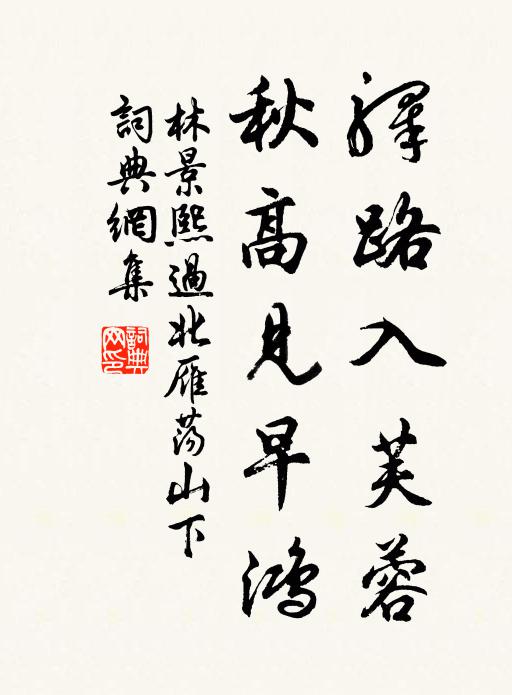 驛路入芙蓉
秋高見早鴻
林景熙過北雁蕩山下
詞典網集
詞典網印